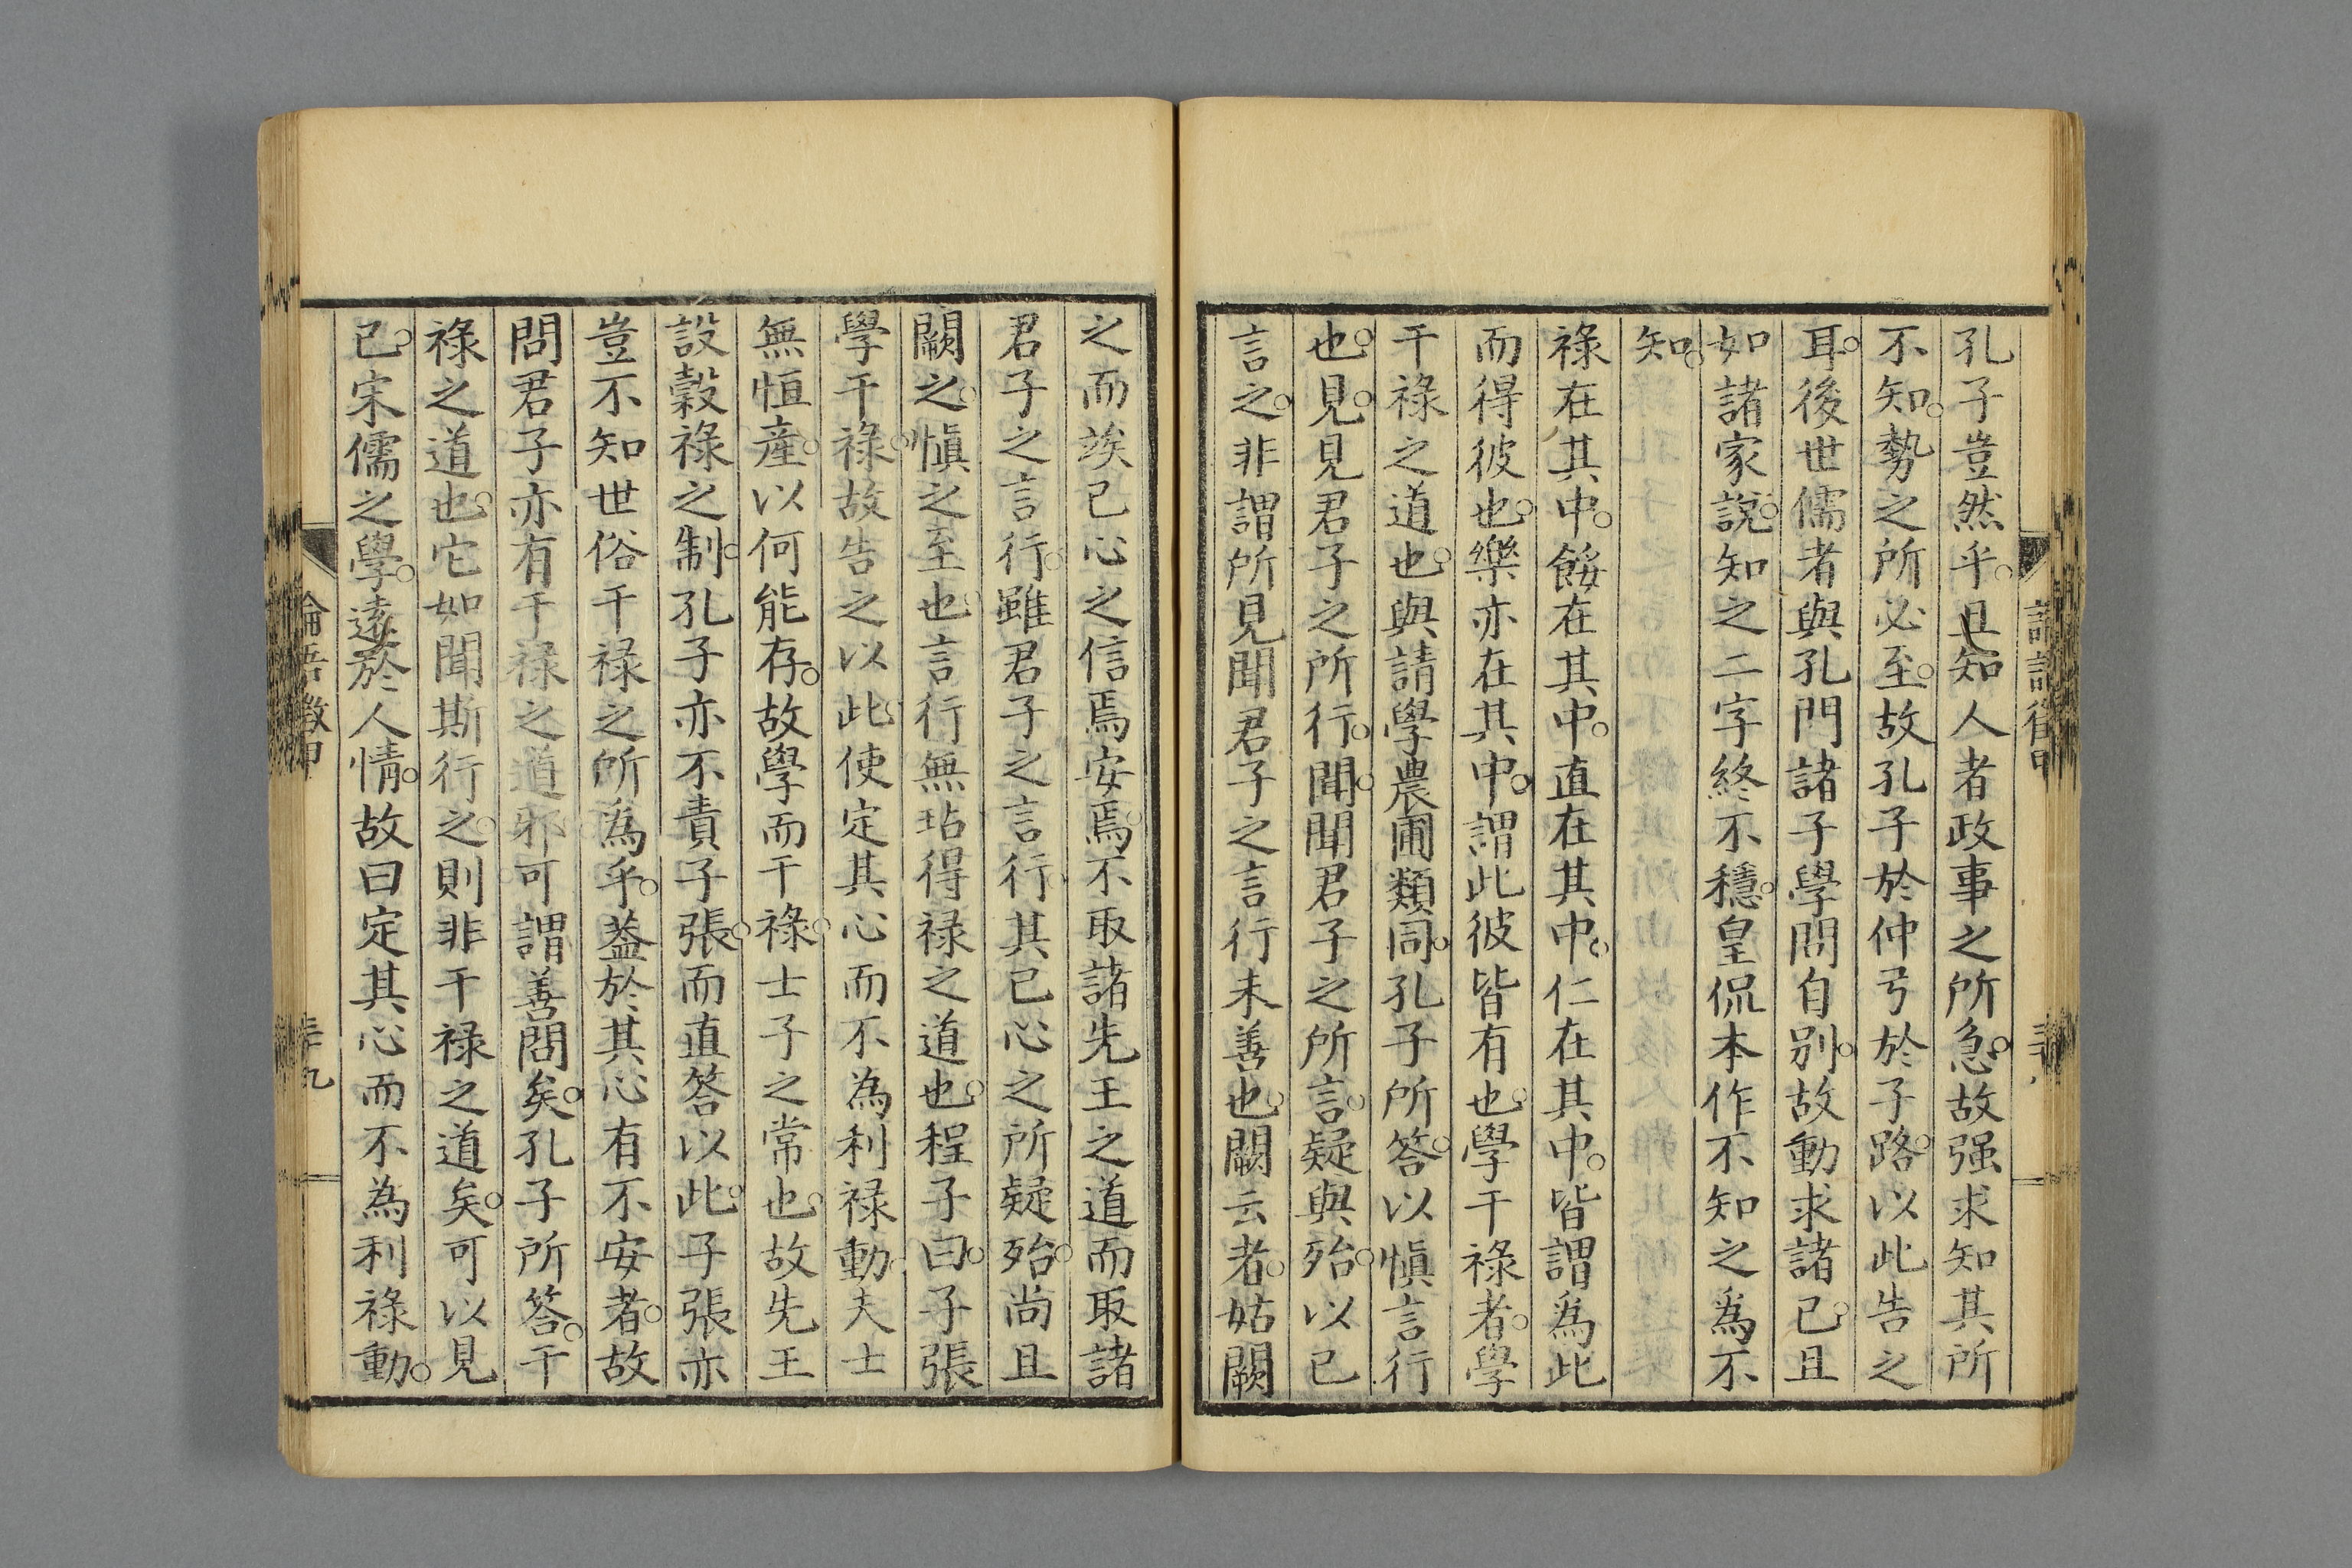 孔子豈然乎且知人者政事之所急故强求知其所
不知勢之所必至故孔子於仲弓於子路以此告之
耳後世儒者與孔門諸子學問自別故動求諸己且
如諸家說知之二字終不穩皇侃本作不知之爲不
知
祿在其中餒在其中直在其中仁在其中皆謂爲此
而得彼也樂亦在其中謂此彼皆有也學干祿者學
干祿之道也與請學農圃類同孔子所答以愼言行
也見見君子之所行聞聞君子之所言疑與殆以己
言之非謂所見聞君子之言行未善也闕云者姑闕
之而竢己心之信焉安焉不取諸先王之道而取諸
君子之言行雖君子之言行其己心之所疑殆尚且
闕之愼之至也言行無玷得祿之道也程子曰子張
學干祿故告之以此使定其心而不為利祿動夫士
無恒產以何能存故學而干祿士子之常也故先王
設穀祿之制孔子亦不責子張而直答以此子張亦
豈不知世俗干祿之所爲乎蓋於其心有不安者故
問君子亦有干祿之道邪可謂善問矣孔子所答干
祿之道也它如聞斯行之則非干祿之道矣可以見
已宋儒之學遠於人情故曰定其心而不為利祿動
論語徵甲
三十九